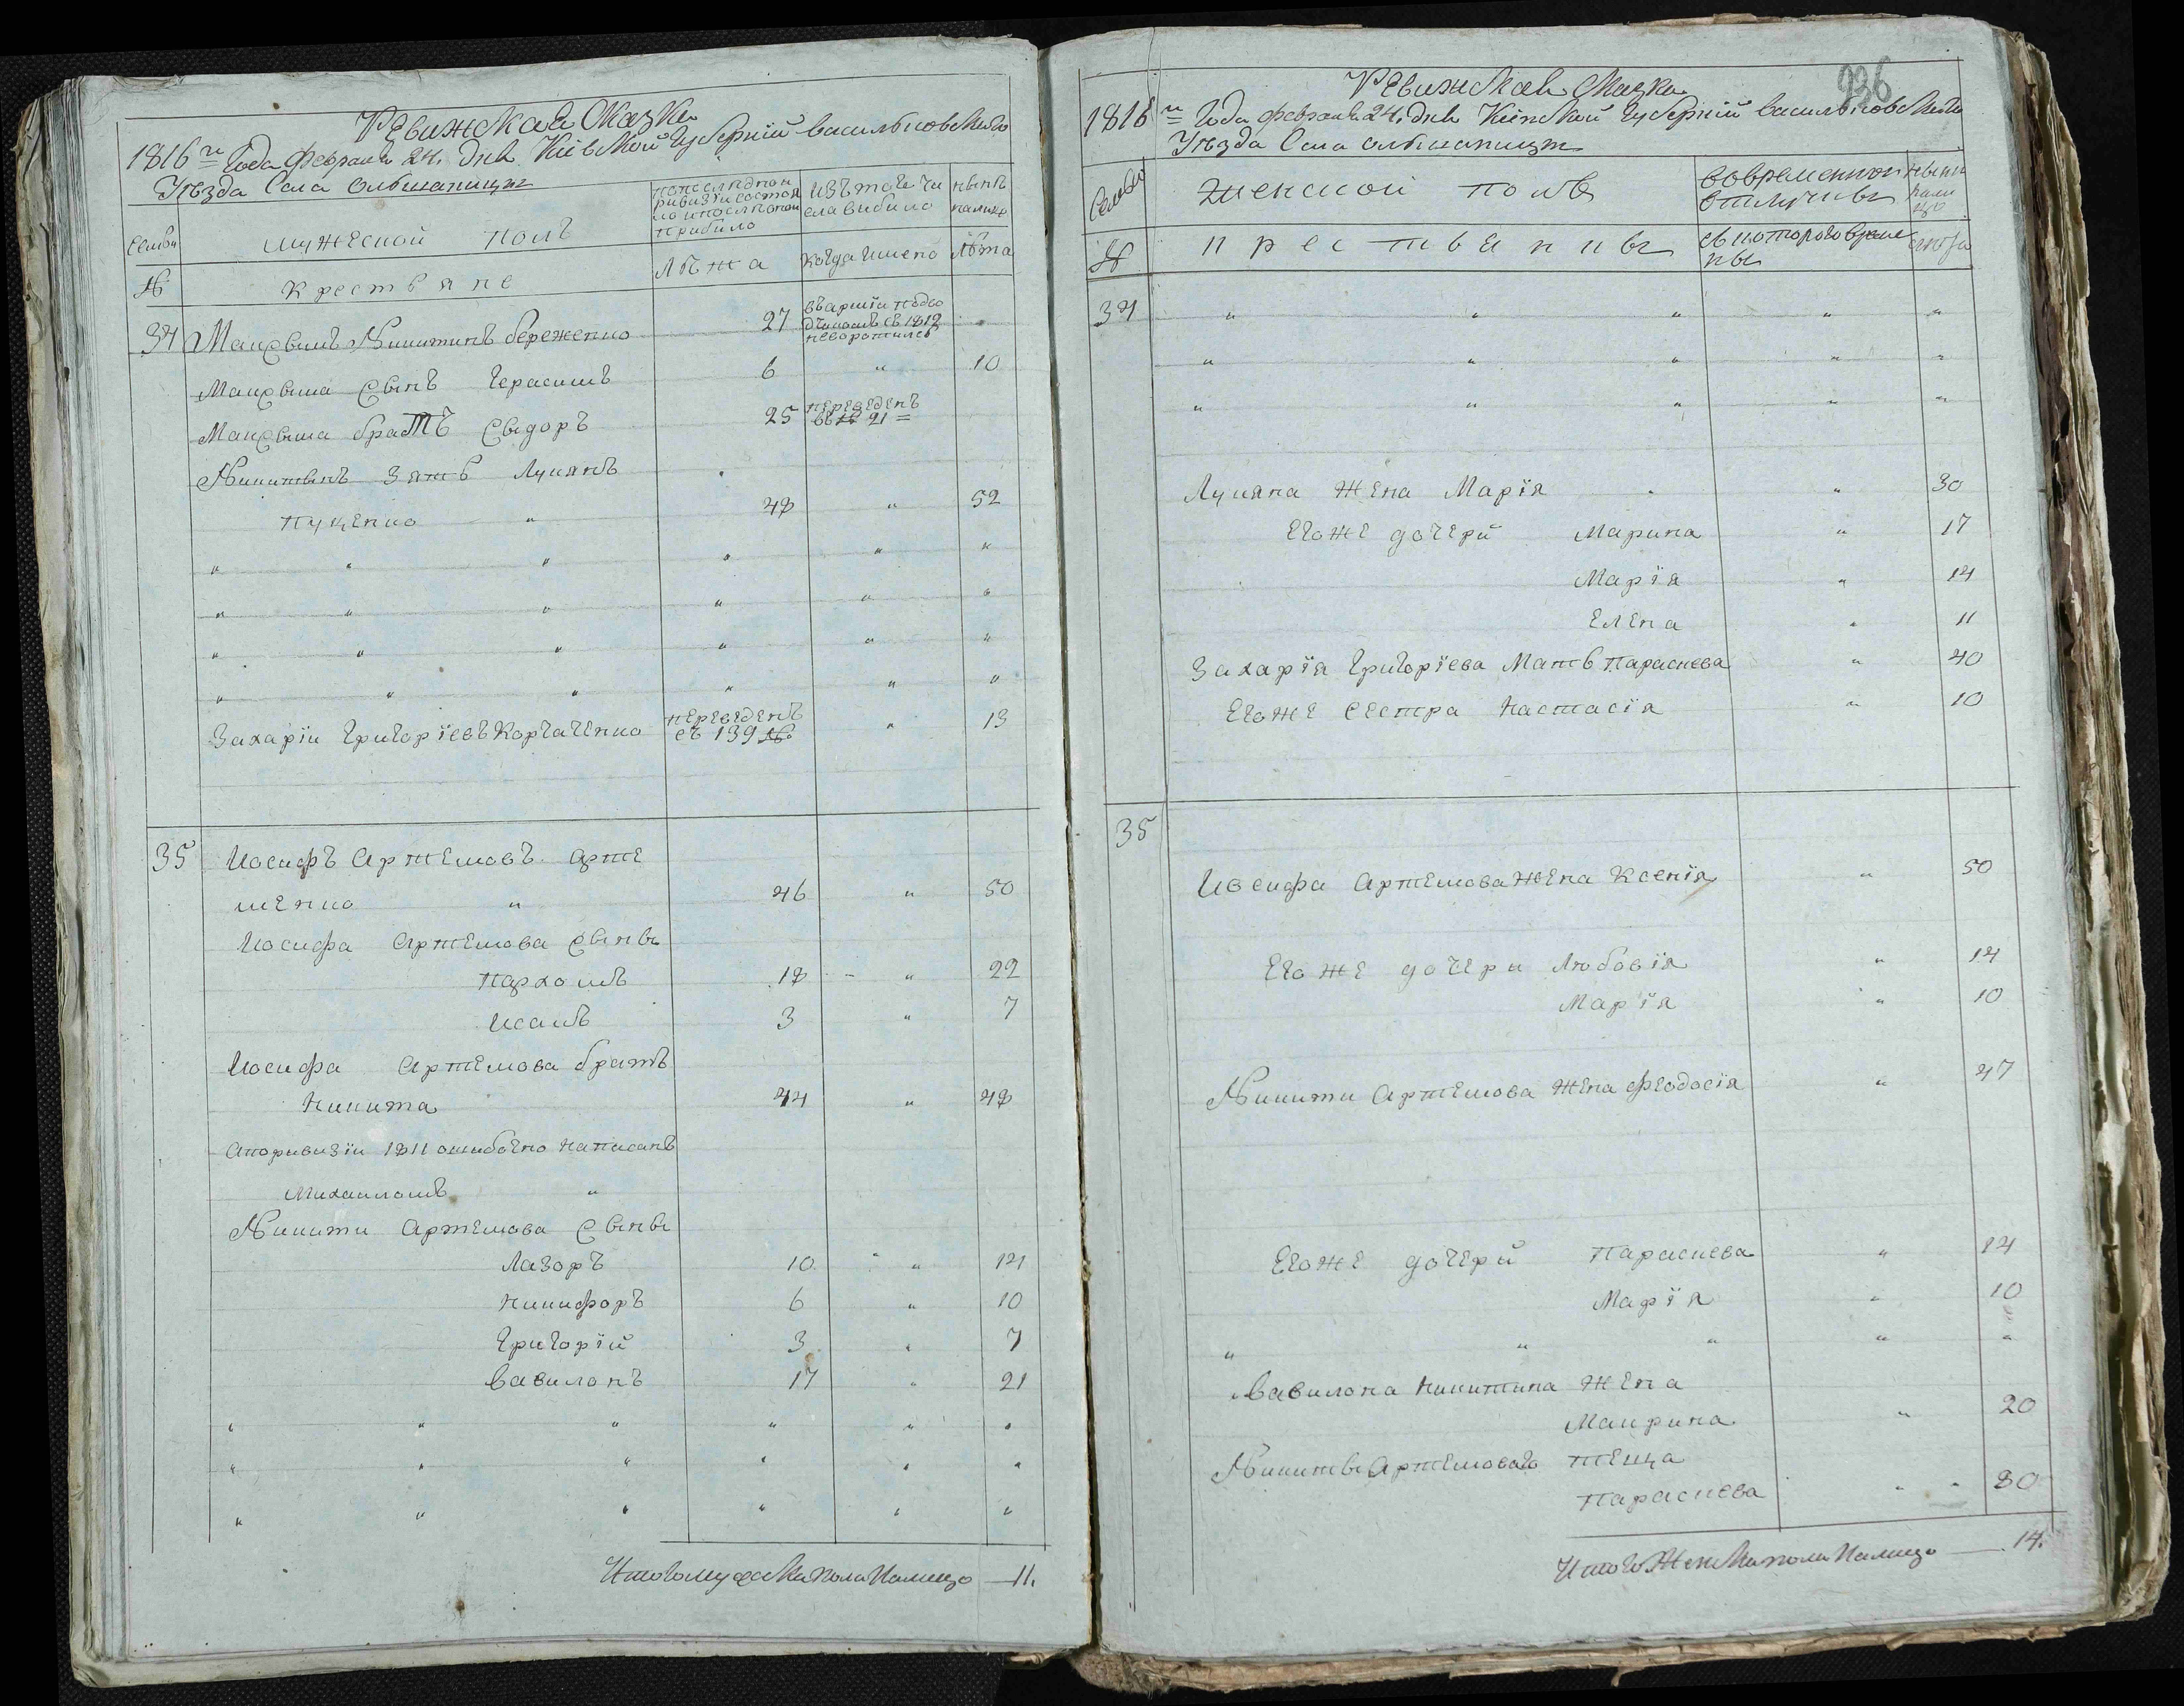 Ревижская Сказка
1816го Года февраля 24. дня Кіевской Губерніи васильковского
Уезда Села ольшаницы
Семьи
мужеской полъ
по последной ривизіи состояло и после оной прибило
изътого числа вибило
ныне налицо
№
крестьяне
Лѣта
когда имено
лѣта
34 Максымъ Никитинъ береженко 27
въ арміи подводчикомъ съ 1812 неворотился
Максыма сынъ Герасимъ 6 " 10
Максыма братъ Сыдоръ 25 переведенъ въ № 21 =
Никитинъ зять Лукянъ
пуценко " 48 " 52
" " " " " "
" " " " " "
" " " " " "
" " " " " "
Захарій Григоріевъ Корчаченко переведенъ съ 139 № " 13
35 Иосифъ Артемовъ арте
менко " 46 " 50
Иосифа Артемова сыны
Пархомъ 18 " 22
Исакъ 3 " 7
Иосифа Артемова братъ
Никита 44 " 48
апоривизіи 1811 ошибочно написанъ
Михаиломъ "
Никити Артемова сыны
Лазоръ 10 " 14
Никифоръ 6 " 10
Григорій 3 " 7
Вавилонъ 17 " 21
" " " " " "
" " " " " "
" " " " " "
Итого мужеска пола налицо — 11.
936
Ревижская Сказка
1816го Года февраля 24. дня Кіевской Губерніи васильковского
Уезда Села ольшаницы
Семьи
женской полъ
вовременной отлучкы
ныне налицо
№
крестьянкы
съ которого времены
34 " " " " "
" " " " "
" " " " "
Лукяна жена Марія " " 30
Егоже дочери Марина " 17
Марія " 14
Елена " 11
Захарія Григоріева Мать Параскева " 40
Егоже сестра Настасія " 10
35
Иосифа Артемова жена Ксенія " 50
Егоже дочери Любовія " 14
Марія " 10
Никити Артемова жена Феодосія " 47
Егоже дочери Параскева " 14
Марія " 10
" " " " "
Вавилона Никитина жена
Маирина " 20
Никиты Артемоваго теща
Параскева " " 80
Итого Женска пола налицо — 14.